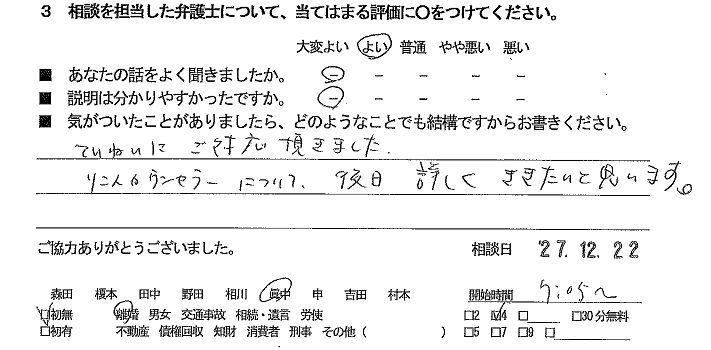 3 相談を担当した弁護士について、当てはまる評価に○をつけてください。
大変よい よい 普通 やや悪い 悪い
■ あなたの話をよく聞きましたか。 − − − − −
■ 説明は分かりやすかったですか。 − − − − −
■ 気がついたことがありましたら、どのようなことでも結構ですからお書きください。
ていねいに ご対応 頂きました.
リコンカウンセラー について、 後日 詳しく ききたいと思います。
ご協力ありがとうございました。 相談日 '27.12.22
森田 榎本 田中 野田 相川 眞中 申 吉田 村本 開始時間 7:05〜
□初無 離婚 男女 交通事故 相続・遺言 労使 □2 □4 □ □30分無料
□初有 不動産 債権回収 知財 消費者 刑事 その他 ( ) □5 □7 □9 □